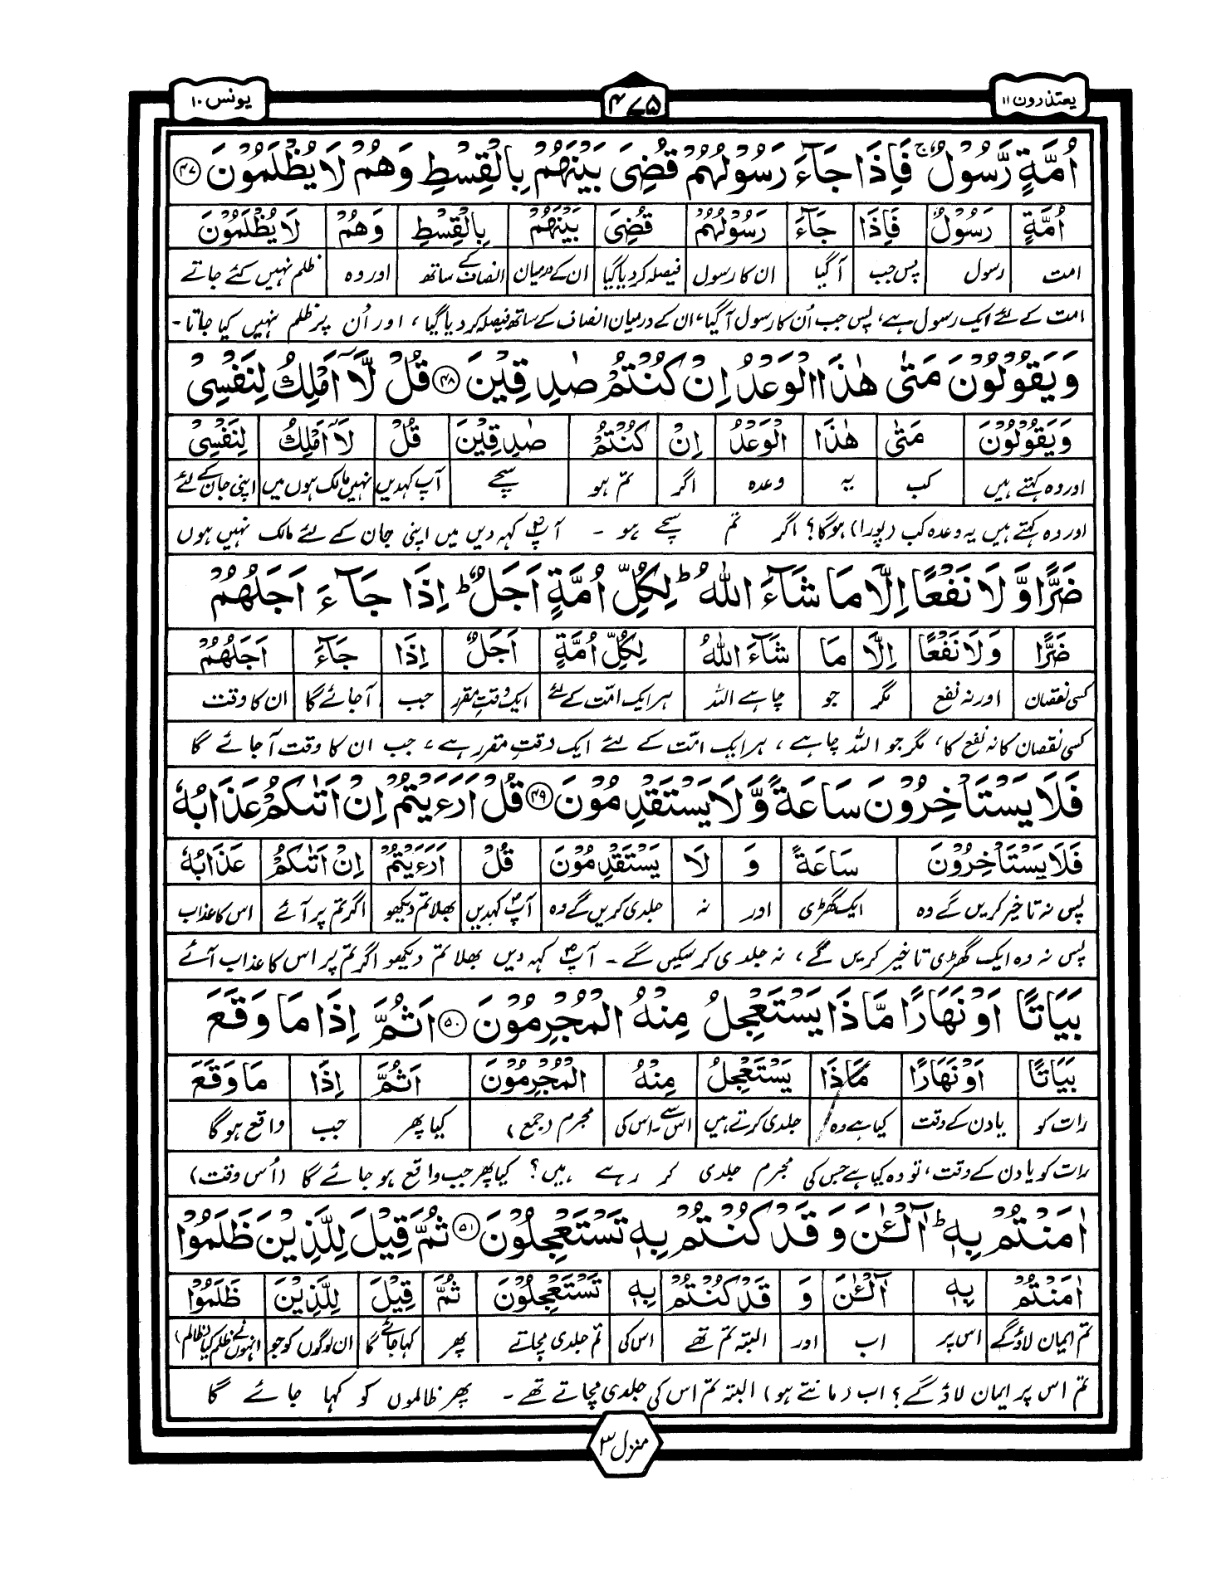 یعتذرون ۱۱
۴۷۵
یونس ۱۰
اُمَّةٍ رَّسُوْلٌ ۚ فَاِذَا جَآءَ رَسُوْلُهُمْ قُضِیَ بَیْنَهُمْ بِالْقِسْطِ وَهُمْ لَا یُظْلَمُوْنَ ﴿۴۷﴾
اُمَّةٍ رَسُوْلٌ فَاِذَا جَآءَ رَسُوْلُهُمْ قُضِیَ بَیْنَهُمْ بِالْقِسْطِ وَهُمْ لَا یُظْلَمُوْنَ
امت رسول پس جب آگیا ان کا رسول فیصلہ کردیا گیا ان کے درمیان انصاف کے ساتھ اور وہ ظلم نہیں کئے جاتے
امت کے لئے ایک رسول ہے، پس جب اُن کا رسول آگیا، ان کے درمیان انصاف کے ساتھ فیصلہ کردیا گیا، اور اُن پر ظلم نہیں کیا جاتا۔
وَیَقُوْلُوْنَ مَتٰی هٰذَا الْوَعْدُ اِنْ کُنْتُمْ صٰدِقِیْنَ ﴿۴۸﴾ قُلْ لَّاۤ اَمْلِكُ لِنَفْسِیْ
وَیَقُوْلُوْنَ مَتٰی هٰذَا الْوَعْدُ اِنْ کُنْتُمْ صٰدِقِیْنَ قُلْ لَاۤ اَمْلِكُ لِنَفْسِیْ
اور وہ کہتے ہیں کب یہ وعدہ اگر تم ہو سچے آپ کہدیں نہیں مالک ہوں میں اپنی جان کے لئے
اور وہ کہتے ہیں یہ وعدہ کب (پورا) ہوگا؟ اگر تم سچے ہو ۔ آپؐ کہہ دیں میں اپنی جان کے لئے مالک نہیں ہوں
ضَرًّا وَّلَا نَفْعًا اِلَّا مَا شَآءَ اللّٰهُ ؕ لِکُلِّ اُمَّةٍ اَجَلٌ ؕ اِذَا جَآءَ اَجَلُهُمْ
ضَرًّا وَلَا نَفْعًا اِلَّا مَا شَآءَ اللّٰهُ لِکُلِّ اُمَّةٍ اَجَلٌ اِذَا جَآءَ اَجَلُهُمْ
کسی نقصان اور نہ نفع مگر جو چاہے اللہ ہر ایک امّت کے لئے ایک وقت مقرر جب آجائے گا ان کا وقت
کسی نقصان کا نہ نفع کا، مگر جو اللہ چاہے، ہر ایک امّت کے لئے ایک وقتِ مقرر ہے، جب ان کا وقت آجائے گا
فَلَا یَسْتَاْخِرُوْنَ سَاعَةً وَّلَا یَسْتَقْدِمُوْنَ ﴿۴۹﴾ قُلْ اَرَءَیْتُمْ اِنْ اَتٰىکُمْ عَذَابُهٗ
فَلَا یَسْتَاْخِرُوْنَ سَاعَةً وَ لَا یَسْتَقْدِمُوْنَ قُلْ اَرَءَیْتُمْ اِنْ اَتٰىکُمْ عَذَابُهٗ
پس نہ تاخیر کریں گے وہ ایک گھڑی اور نہ جلدی کریں گے وہ آپؐ کہدیں بھلا تم دیکھو اگر تم پر آئے اس کا عذاب
پس نہ وہ ایک گھڑی تاخیر کریں گے، نہ جلدی کرسکیں گے ۔ آپؐ کہہ دیں بھلا تم دیکھو اگر تم پر اس کا عذاب آئے
بَیَاتًا اَوْ نَهَارًا مَّاذَا یَسْتَعْجِلُ مِنْهُ الْمُجْرِمُوْنَ ﴿۵۰﴾ اَثُمَّ اِذَا مَا وَقَعَ
بَیَاتًا اَوْ نَهَارًا مَاذَا یَسْتَعْجِلُ مِنْهُ الْمُجْرِمُوْنَ اَثُمَّ اِذَا مَا وَقَعَ
رات کو یا دن کے وقت کیا ہے وہ جلدی کرتے ہیں اس سے۔اس کی مجرم (جمع) کیا پھر جب واقع ہوگا
رات کو یا دن کے وقت، تو وہ کیا ہے جس کی مجرم جلدی کر رہے ہیں؟ کیا پھر جب واقع ہو جائے گا (اُس وقت)
اٰمَنْتُمْ بِهٖ ؕ آٰلْـٰٔنَ وَقَدْ کُنْتُمْ بِهٖ تَسْتَعْجِلُوْنَ ﴿۵۱﴾ ثُمَّ قِیْلَ لِلَّذِیْنَ ظَلَمُوْا
اٰمَنْتُمْ بِهٖ آٰلْـٰٔنَ وَ قَدْ کُنْتُمْ بِهٖ تَسْتَعْجِلُوْنَ ثُمَّ قِیْلَ لِلَّذِیْنَ ظَلَمُوْا
تم ایمان لاؤ گے اس پر اب اور البتہ تم تھے اس کی تم جلدی مچاتے پھر کہا جائے گا ان لوگوں کو جو انہوں نے ظلم کیا (ظالم)
تم اس پر ایمان لاؤ گے؟ اب (مانتے ہو) البتہ تم اس کی جلدی مچاتے تھے ۔ پھر ظالموں کو کہا جائے گا
منزل ۳